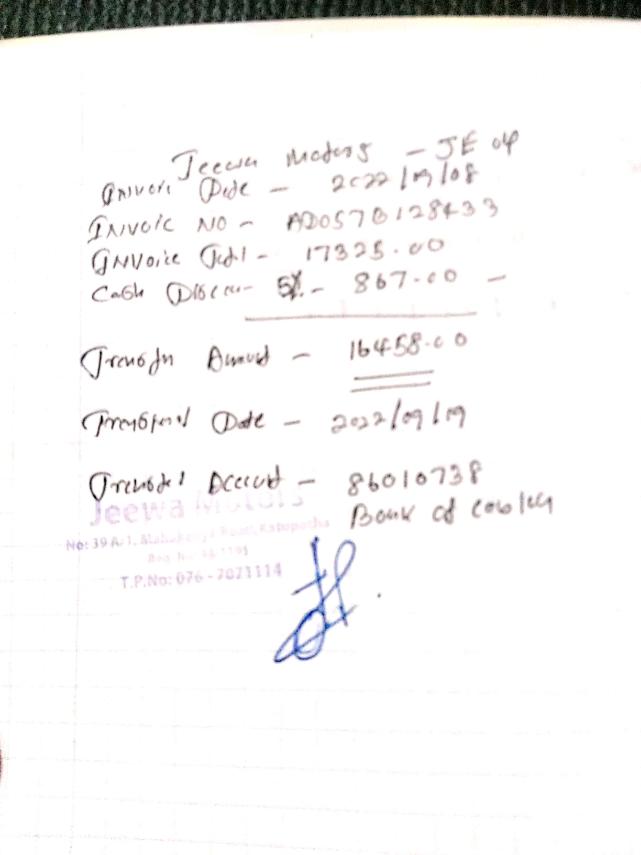 Jeewa Motors - JE 04
Invoice Date - 2022/09/08
Invoice NO - AD057B128433
Invoice Total - 17325.00
Cash Discou- 5% - 867.00 -
Transfer Amount - 16458.00
Transferd Date - 2022/09/19
Transfer Account - 86010738
Bank of Ceylon
Jeewa Motors
No: 39 A/1, Road,
T.P.No: 076 - 7071114